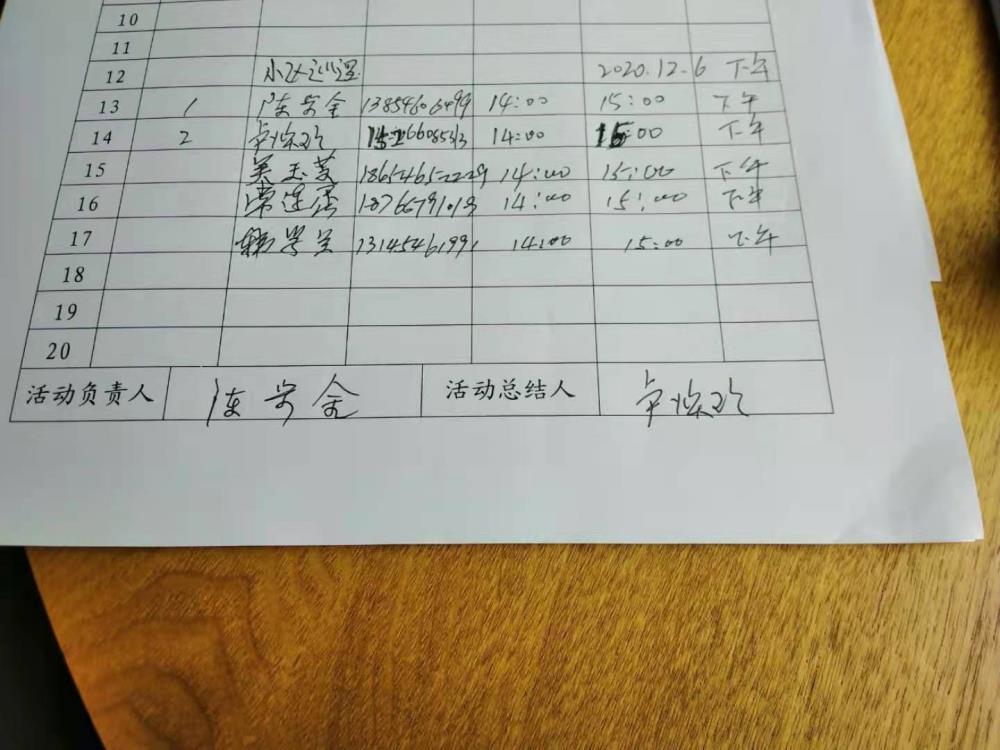 10
11
12 小区巡逻 2020.12.6 下午
13 1 陈安全 13854606499 14:00 15:00 下午
14 2 14:00 15:00 下午
15 吴玉菱 18654652229 14:00 15:00 下午
16 14:00 15:00 下午
17 13145461991 14:00 15:00 下午
18
19
20
活动负责人 陈安全 活动总结人